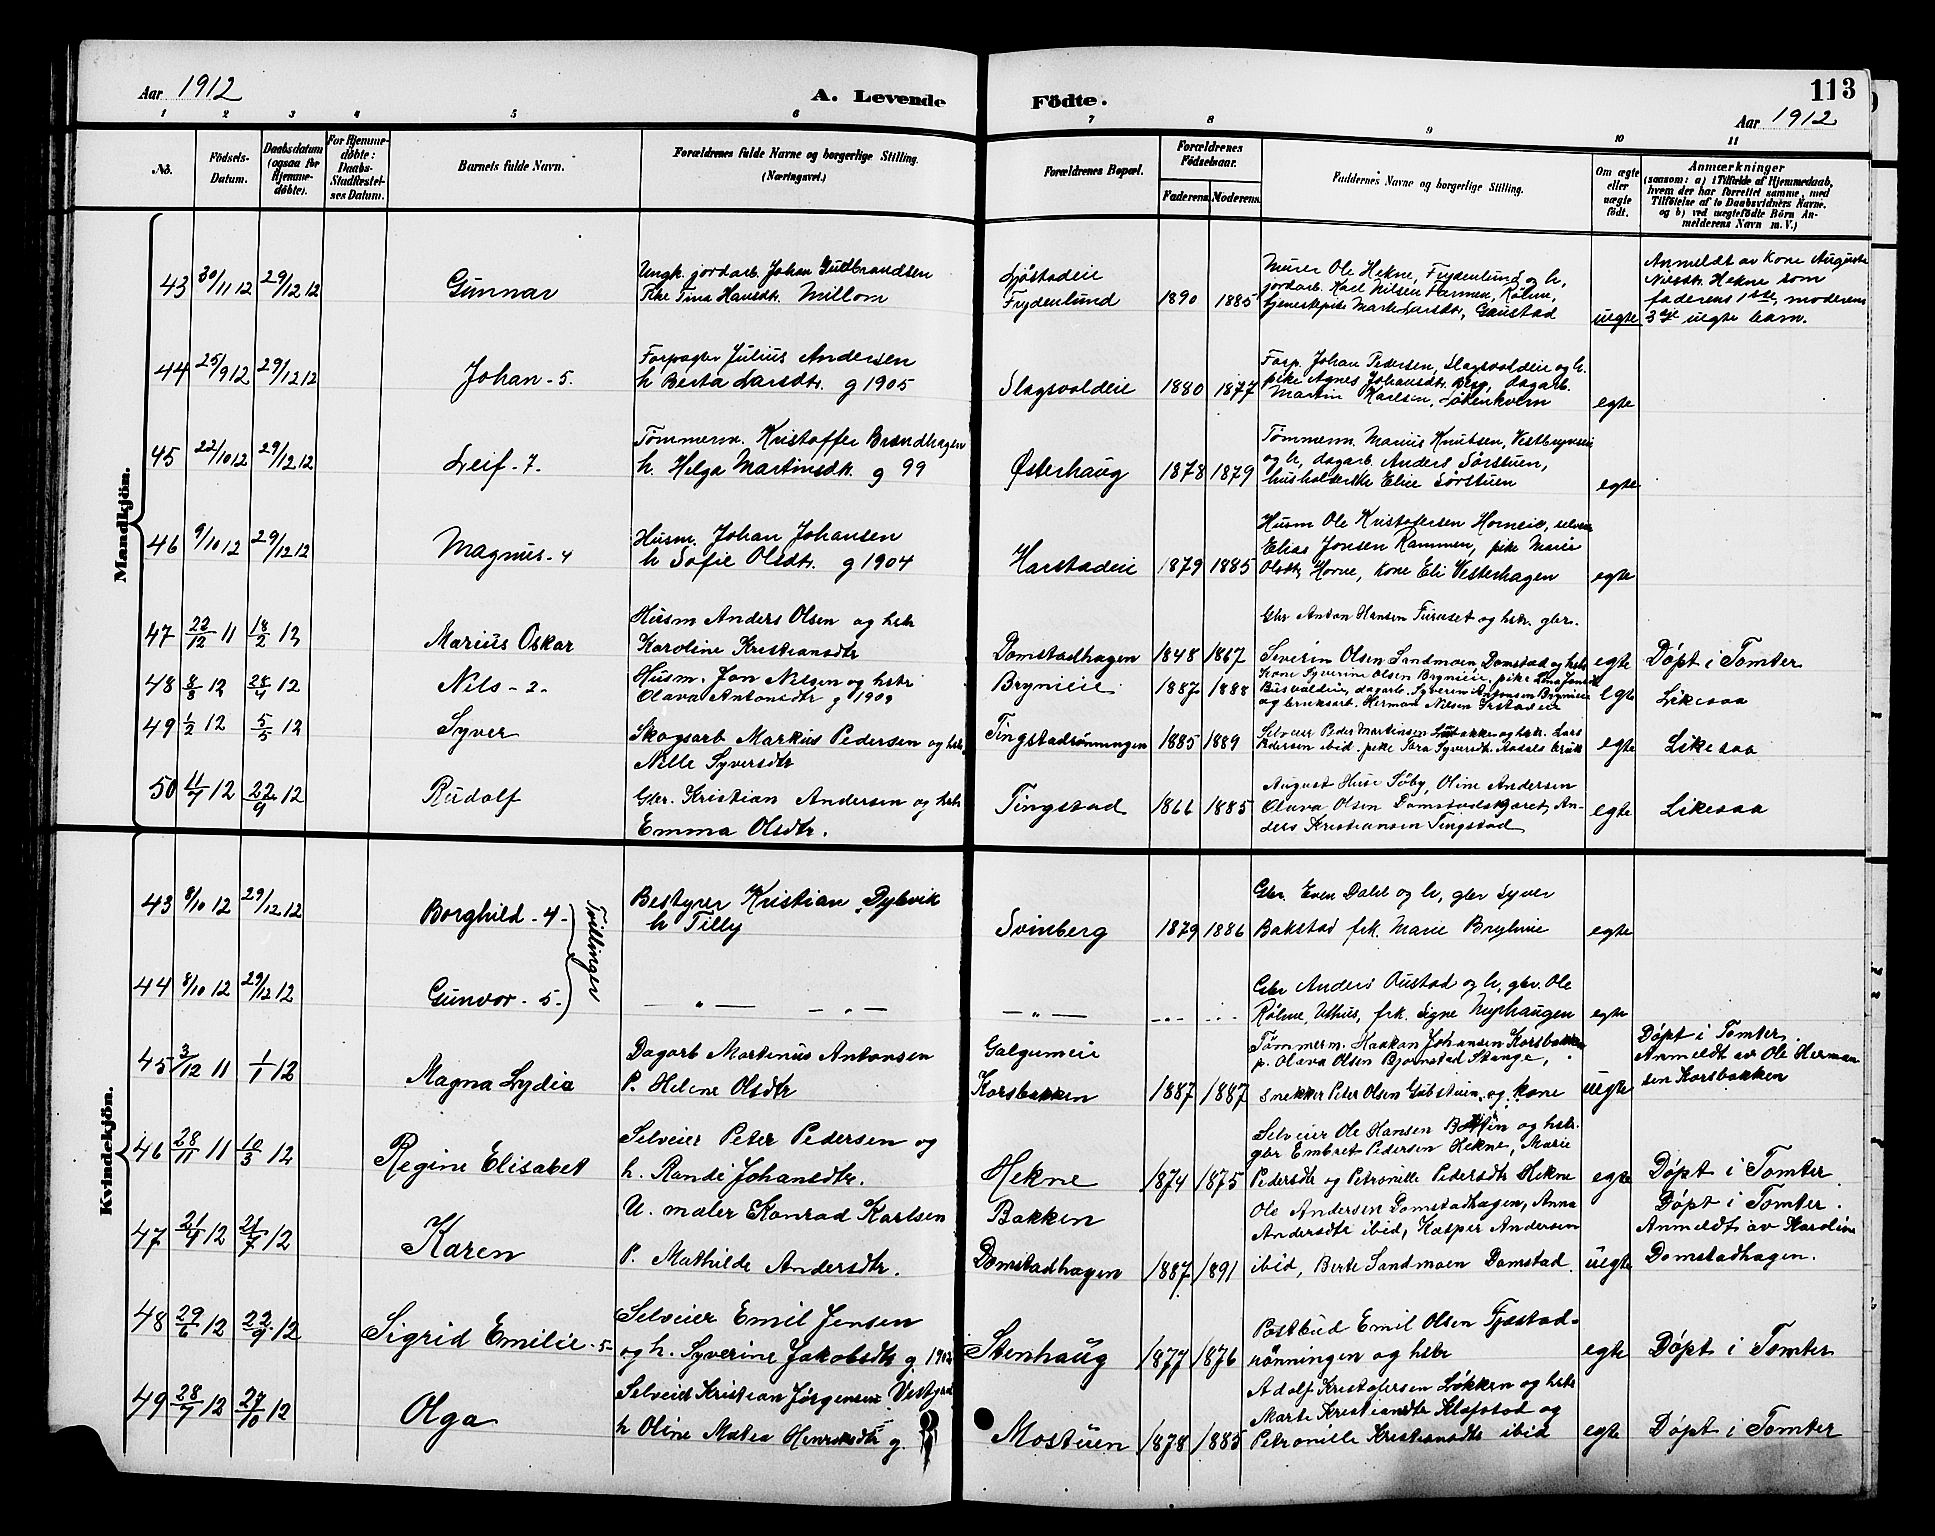 113
Aar 1912
A. Levende
Födte.
Aar 1912
1 2 3 4 5 6 7 8 9 10 11
No.
Födsels-Datum.
Daabsdatum (ogsaa for Hjemme-döbte).
For Hjemme-döbte: Daabs-Stadfæstel-ses Datum.
Barnets fulde Navn.
Forældrenes fulde Navne og borgerlige Stilling.
(Næringsvei.)
Forældrenes Bopæl.
Forældrenes Födselsaar.
Faderens. Moderens.
Faddernes Navne og borgerlige Stilling.
Om ægte eller uægte födt.
Anmærkninger
(saasom: a) i Tilfælde af Hjemmedaab,
hvem der har forrettet samme, med
Tilföielse af to Daabsvidners Navne.
og b) ved uægtefödte Börn An-
melderens Navn m. V.)
Mandkjön.
43 30/11 12 29/12 12 Gunnar
Ungk. jordarb. Johan Gudbrandsen
Pike Tina Hansdt. Millom
Sjøstadeie
Frydenlund 1890 1885
Murer Ole Hekne, Frydenlund og h,
jordarb. Karl Nilsen Farmen, Rølme,
tjenestepike Marte Larsdtr, Gaustad
uegte
Anmeldt av kone Auguste
Nilsdt. Hekne som
faderens 1ste, moderens
3dje uegte barn.
44 25/9 12 29/12 12 Johan - 5.
Forpagter Julius Andersen
h Berta Larsdtr. g 1905
Slagsvoldeie 1880 1877
Forp. Johan Pedersen, Slagsvoldeie og h.
pike Agnes Johansdt. Berg, dagarb.
Martin Karlsen, Løkenkvern
egte
45 22/10 12 29/12 12 Leif - 7.
Tømmerm. Kristoffer Brændhagen
h. Helga Martinsdt. g 99
Østerhaug 1878 1879
Tømmerm. Marius Knutsen, Vestbryneie
og h, dagarb. Anders Sørstuen,
husholderske Elise Sørstuen
egte
46 9/10 12 29/12 12 Magnus - 4
Husm. Johan Johansen
h Sofie Olsdtr. g 1904
Harstadeie 1879 1885
Husm Ole Kristofersen Horneie, selveier
Elias Jonsen Rammen, pike Marie
Olsdtr Horne, kone Eli Vesterhagen
egte
47 22/12 11 18/2 12 Marius Oskar
Husm Anders Olsen og hstr
Karoline Kristiansdtr
Domstadhagen 1848 1867
Gbr Anton Hansen Furuset og hstr. gbr.
Severin Olsen Sandmoen, Domstad og hstr
egte Døpt i Tomter
48 8/3 12 28/4 12 Nils - 2.
Husm. Jon Nilsen og hstr
Olava Antonsdtr g 1909
Brynieie 1887 1888
kone Syverine Olsen Brynieie, pike Lina Jonsdt
Busvaldeie, dagarb. Syverin Antonsen Brynieie
og bruksarb. Herman Nilsen Irstadeie
egte Likesaa
49 1/2 12 5/5 12 Syver
Skogsarb Markus Pedersen og hstr.
Nille Syversdtr
Tingstadrønningen 1885 1889
Selveier Peder Martinsen og hstr. Lars
Pedersen ibid. pike Tora Syversdt. Aadals bruk
egte Likesaa
50 11/7 12 22/9 12 Rudolf
Gbr. Kristian Andersen og hstr
Emma Olsdtr.
Tingstad 1866 1885
August Huse Søby, Oline Andersen
Olava Olsen Domstadskjæret, An-
ders Kristiansen Tingstad
egte Likesaa
Kvindekjön.
43 8/10 12 29/12 12 Borghild - 4 -
Tvillinger
Bestyrer Kristian Dybvik
h Tilly
Svinberg 1879 1886
Gbr. Even Dahl og h, gbr Syver
Bakstad frk. Marie Bryhnie
egte
44 8/10 12 29/12 12 Gunvor - 5 -
— „ — — „ —
— „ — - „ - - „ -
Gbr Anders Oustad og h, gbr. Ole
Rølme, Uthus, frk. Signe Nyphaugen
egte
45 3/12 11 1/1 12 Magna Lydia
Dagarb Martinus Antonsen
P. Helene Olsdtr
Galgumeie
Korsbakken 1887 1887
Tømmerm. Haakon Johansen Korsbakken
p. Olava Olsen Bjørnstad Stange,
snekker Peter Olsen Gubstuen og kone
uegte
Døpt i Tomter.
Anmeldt av Ole Herman
sen Korsbakken
46 28/11 11 10/3 12 Regine Elisabet
Selveier Peter Pedersen og
h. Randi Johansdtr.
Hekne 1874 1875
Selveier Ole Hansen og hstr.
gbr Embret Pedersen Hekne, Marie
Pedersdtr og Petronille Pedersdtr Hekne
egte Døpt i Tomter
47 21/4 12 21/7 12 Karen
U. maler Konrad Karlsen
P. Mathilde Andersdtr.
Bakken
Domstadhagen 1887 1891
Ole Andersen Domstadhagen, Anna
Andersdtr ibid, Kasper Andersen
ibid, Berte Sandmoen Domstad.
uegte
Døpt i Tomter.
Anmeldt av Karoline
Domstadhagen.
48 29/6 12 22/9 12 Sigrid Emilie - 5 -
Selveier Emil Jensen
og h. Syverine Jakobsdtr g 1902
Stenhaug 1877 1876
Postbud Emil Olsen Fjæstad-
rønningen og hstr
egte Døpt i Tomter
49 28/7 12 27/10 12 Olga
Selveier Kristian Jørgensen
h Oline Matea Henriksdtr g.
Mostuen 1878 1885
Adolf Kristofersen Løkken og hstr
Marte Kristiansdtr Klafstad og
Petronille Kristiansdtr ibid
egte Døpt i Tomter